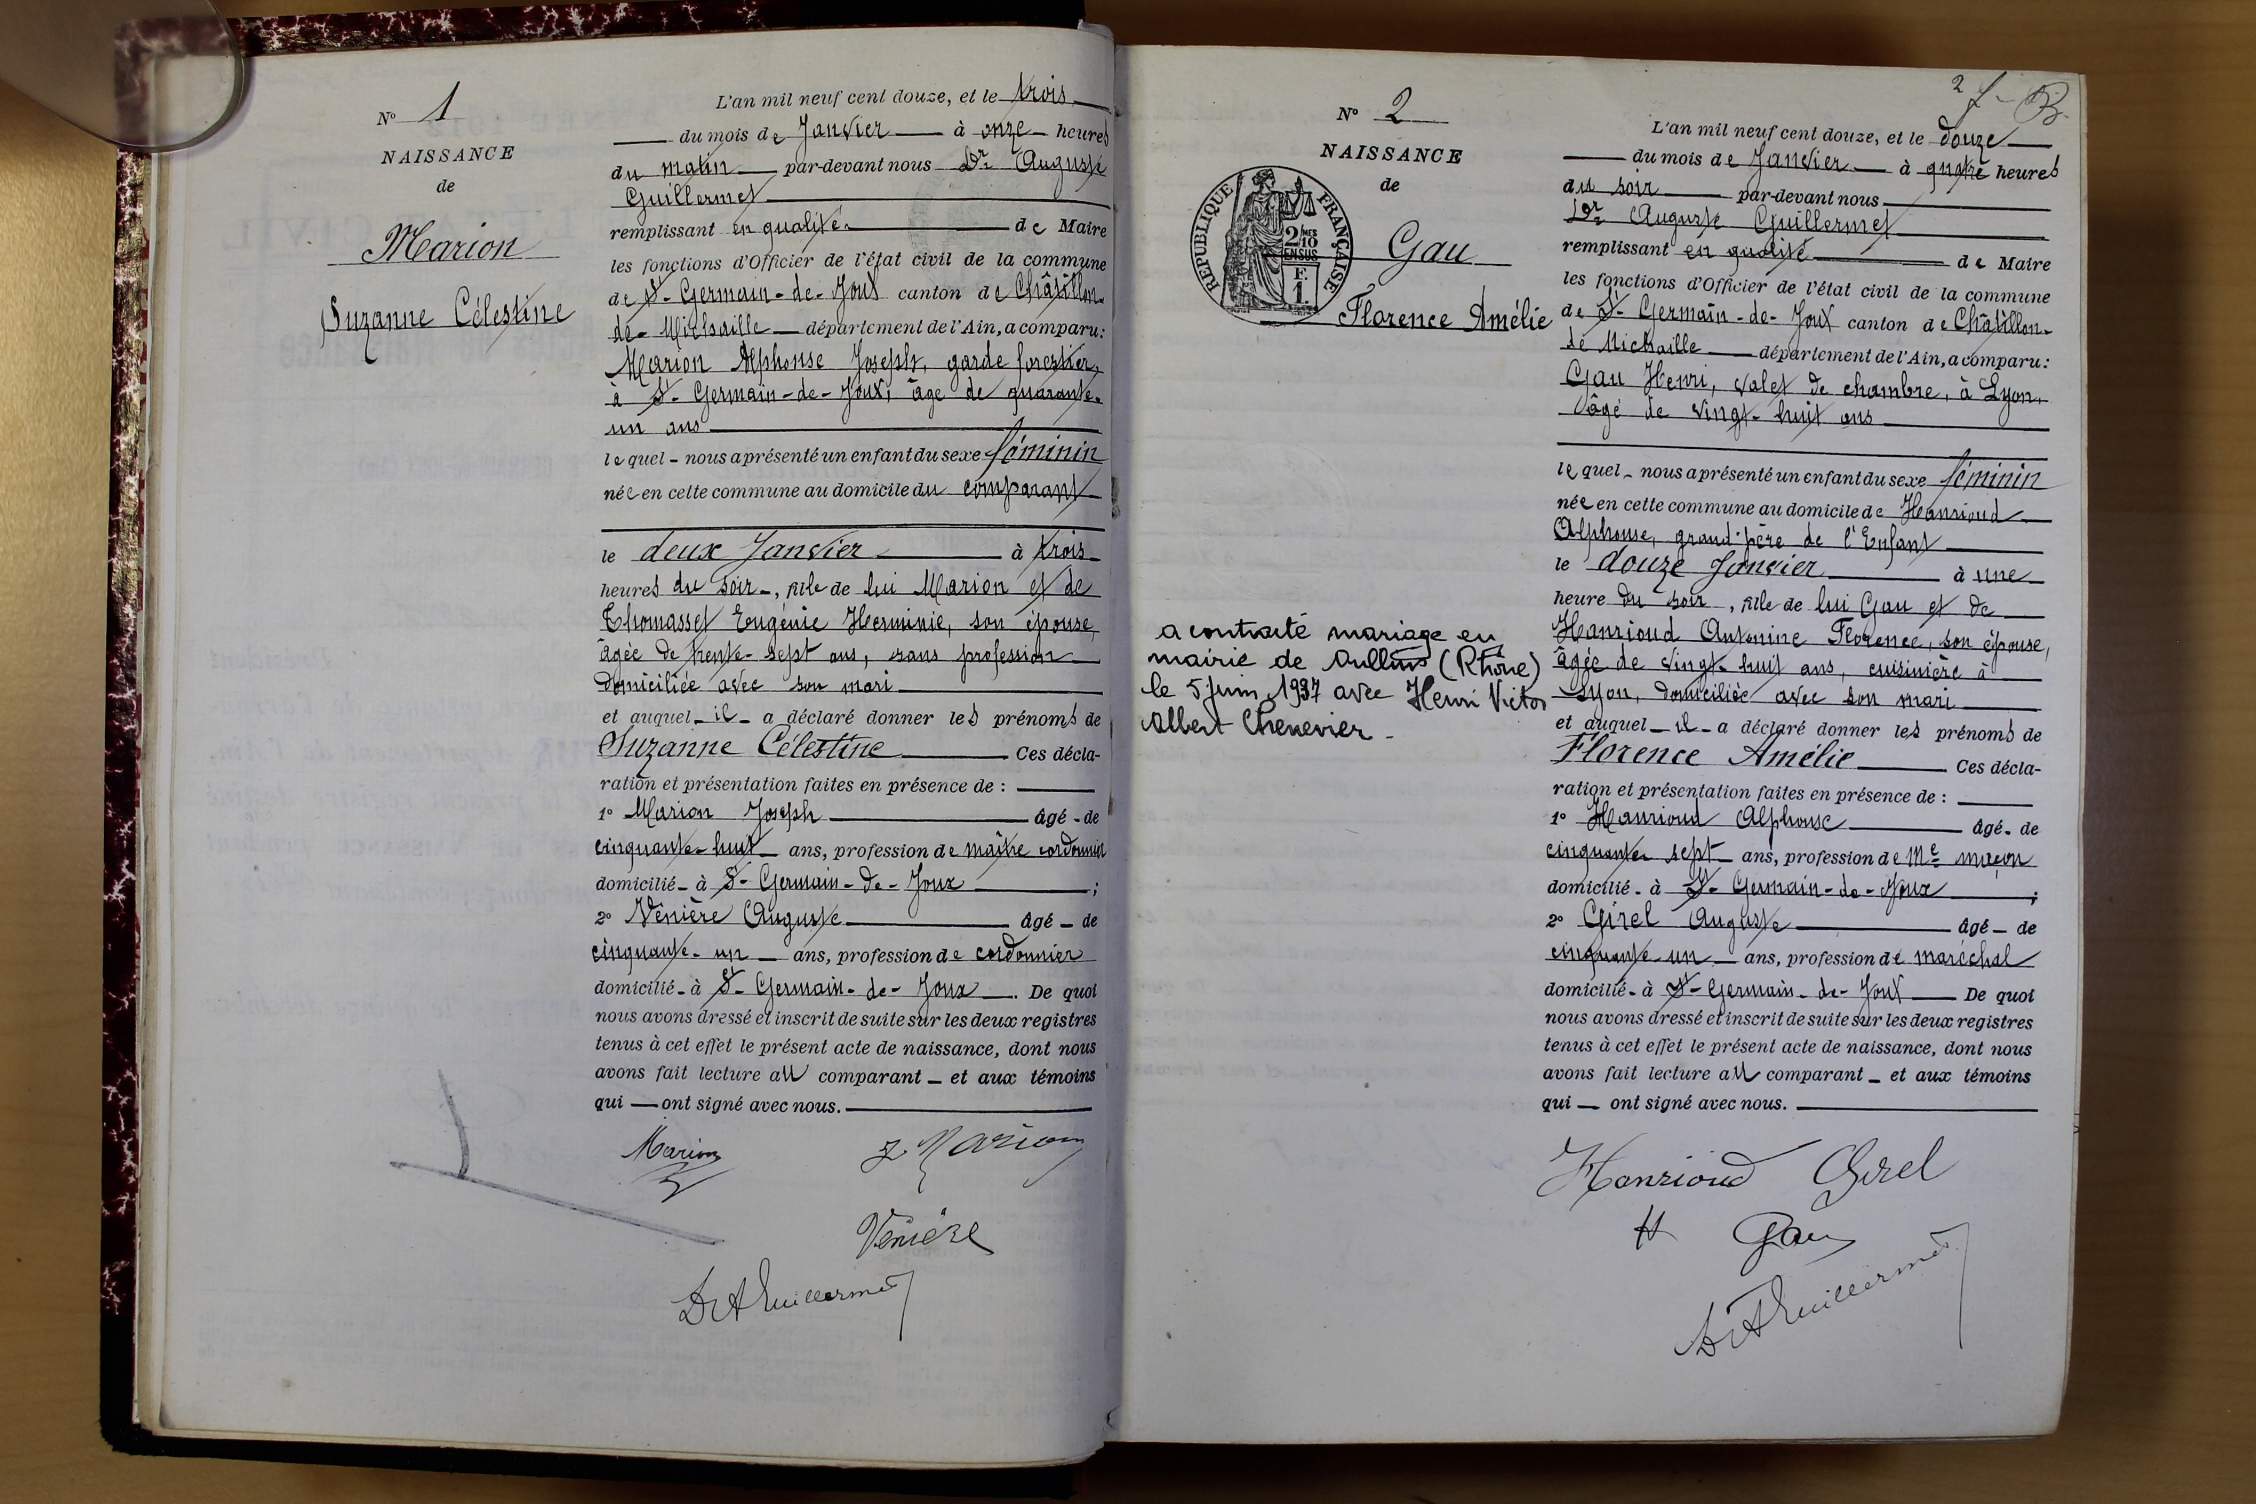 N° 1
NAISSANCE
de
Marion
Suzanne Célestine
L'an mil neuf cent douze, et le trois
du mois de Janvier à onze heures
du matin par-devant nous Dr Auguste
Guillermet
remplissant en qualité de Maire
les fonctions d'Officier de l'état civil de la commune
de St-Germain-de-Joux canton de Châtillon-
de-Michaille département de l'Ain, a comparu:
Marion Alphonse Joseph, garde forestier,
à St-Germain-de-Joux, âgé de quarante-
un ans
lequel nous a présenté un enfant du sexe féminin
née en cette commune au domicile du comparant
le deux Janvier à trois
heures du soir, fille de lui Marion et de
Thomasset Eugénie Herminie, son épouse,
âgée de trente-sept ans, sans profession
domiciliée avec son mari
et auquel il a déclaré donner les prénoms de
Suzanne Célestine Ces décla-
ration et présentation faites en présence de :
1° Marion Joseph âgé de
cinquante-huit ans, profession de maître cordonnier
domicilié à St-Germain-de-Joux ;
2° Vénière Auguste âgé de
cinquante-un ans, profession de cordonnier
domicilié à St-Germain-de-Joux. De quoi
nous avons dressé et inscrit de suite sur les deux registres
tenus à cet effet le présent acte de naissance, dont nous
avons fait lecture au comparant et aux témoins
qui ont signé avec nous.
Marion J Marion
Vénière
Dr A Guillermet
2
N° 2
NAISSANCE
de
RÉPUBLIQUE FRANÇAISE
2/10
EN SUS
F.
1.
Gau
Florence Amélie
a contracté mariage en
mairie de Oullins (Rhône)
le 5 juin 1937 avec Henri Victor
Albert Chenevier.
L'an mil neuf cent douze, et le douze
du mois de Janvier à quatre heures
du soir par-devant nous
Dr Auguste Guillermet
remplissant en qualité de Maire
les fonctions d'Officier de l'état civil de la commune
de St-Germain-de-Joux canton de Châtillon-
de Michaille département de l'Ain, a comparu:
Gau Henri, valet de chambre, à Lyon,
âgé de vingt-huit ans
lequel nous a présenté un enfant du sexe féminin
née en cette commune au domicile de Hanrioud
Alphonse, grand-père de l'Enfant
le douze Janvier à une
heure du soir, fille de lui Gau et de
Hanrioud Antonine Florence, son épouse,
âgée de vingt-huit ans, cuisinière à
Lyon, domiciliée avec son mari
et auquel il a déclaré donner les prénoms de
Florence Amélie Ces décla-
ration et présentation faites en présence de :
1° Hanrioud Alphonse âgé de
cinquante sept ans, profession de Me maçon
domicilié à St-Germain-de-Joux ;
2° Girel Auguste âgé de
cinquante-un ans, profession de maréchal
domicilié à St-Germain-de-Joux De quoi
nous avons dressé et inscrit de suite sur les deux registres
tenus à cet effet le présent acte de naissance, dont nous
avons fait lecture au comparant et aux témoins
qui ont signé avec nous.
Hanrioud Girel
H Gau
Dr A Guillermet